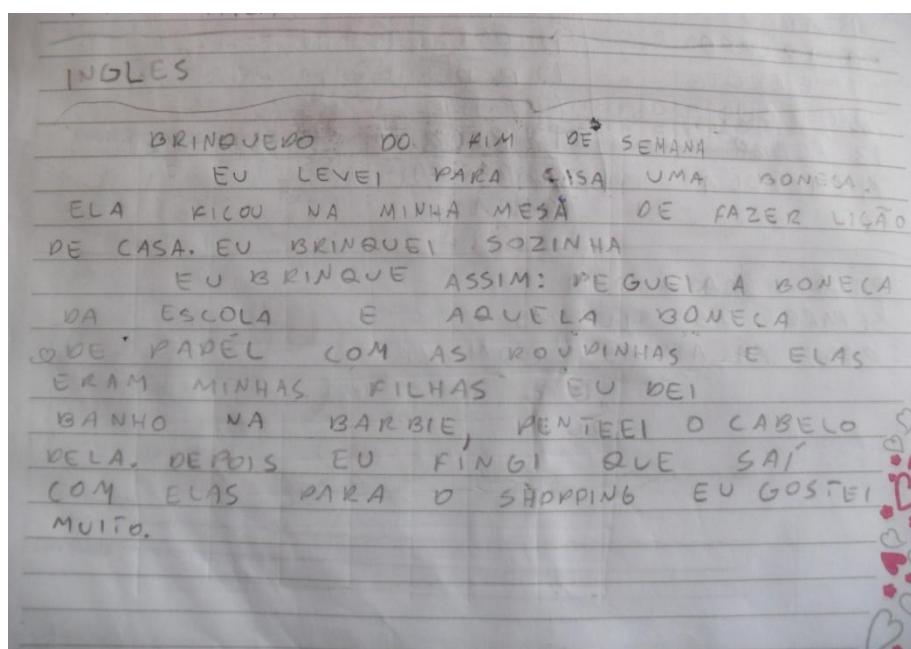 INGLES
BRINQUEDO DO FIM DE SEMANA
EU LEVEI PARA CASA UMA BONECA.
ELA FICOU NA MINHA MESA DE FAZER LIÇÃO
DE CASA. EU BRINQUEI SOZINHA
EU BRINQUE ASSIM: PEGUEI A BONECA
DA ESCOLA E AQUELA BONECA
DE PAPEL COM AS ROUPINHAS E ELAS
ERAM MINHAS FILHAS EU DEI
BANHO NA BARBIE, PENTEEI O CABELO
DELA. DEPOIS EU FINGI QUE SAÍ
COM ELAS PARA O SHOPPING EU GOSTEI
MUITO.